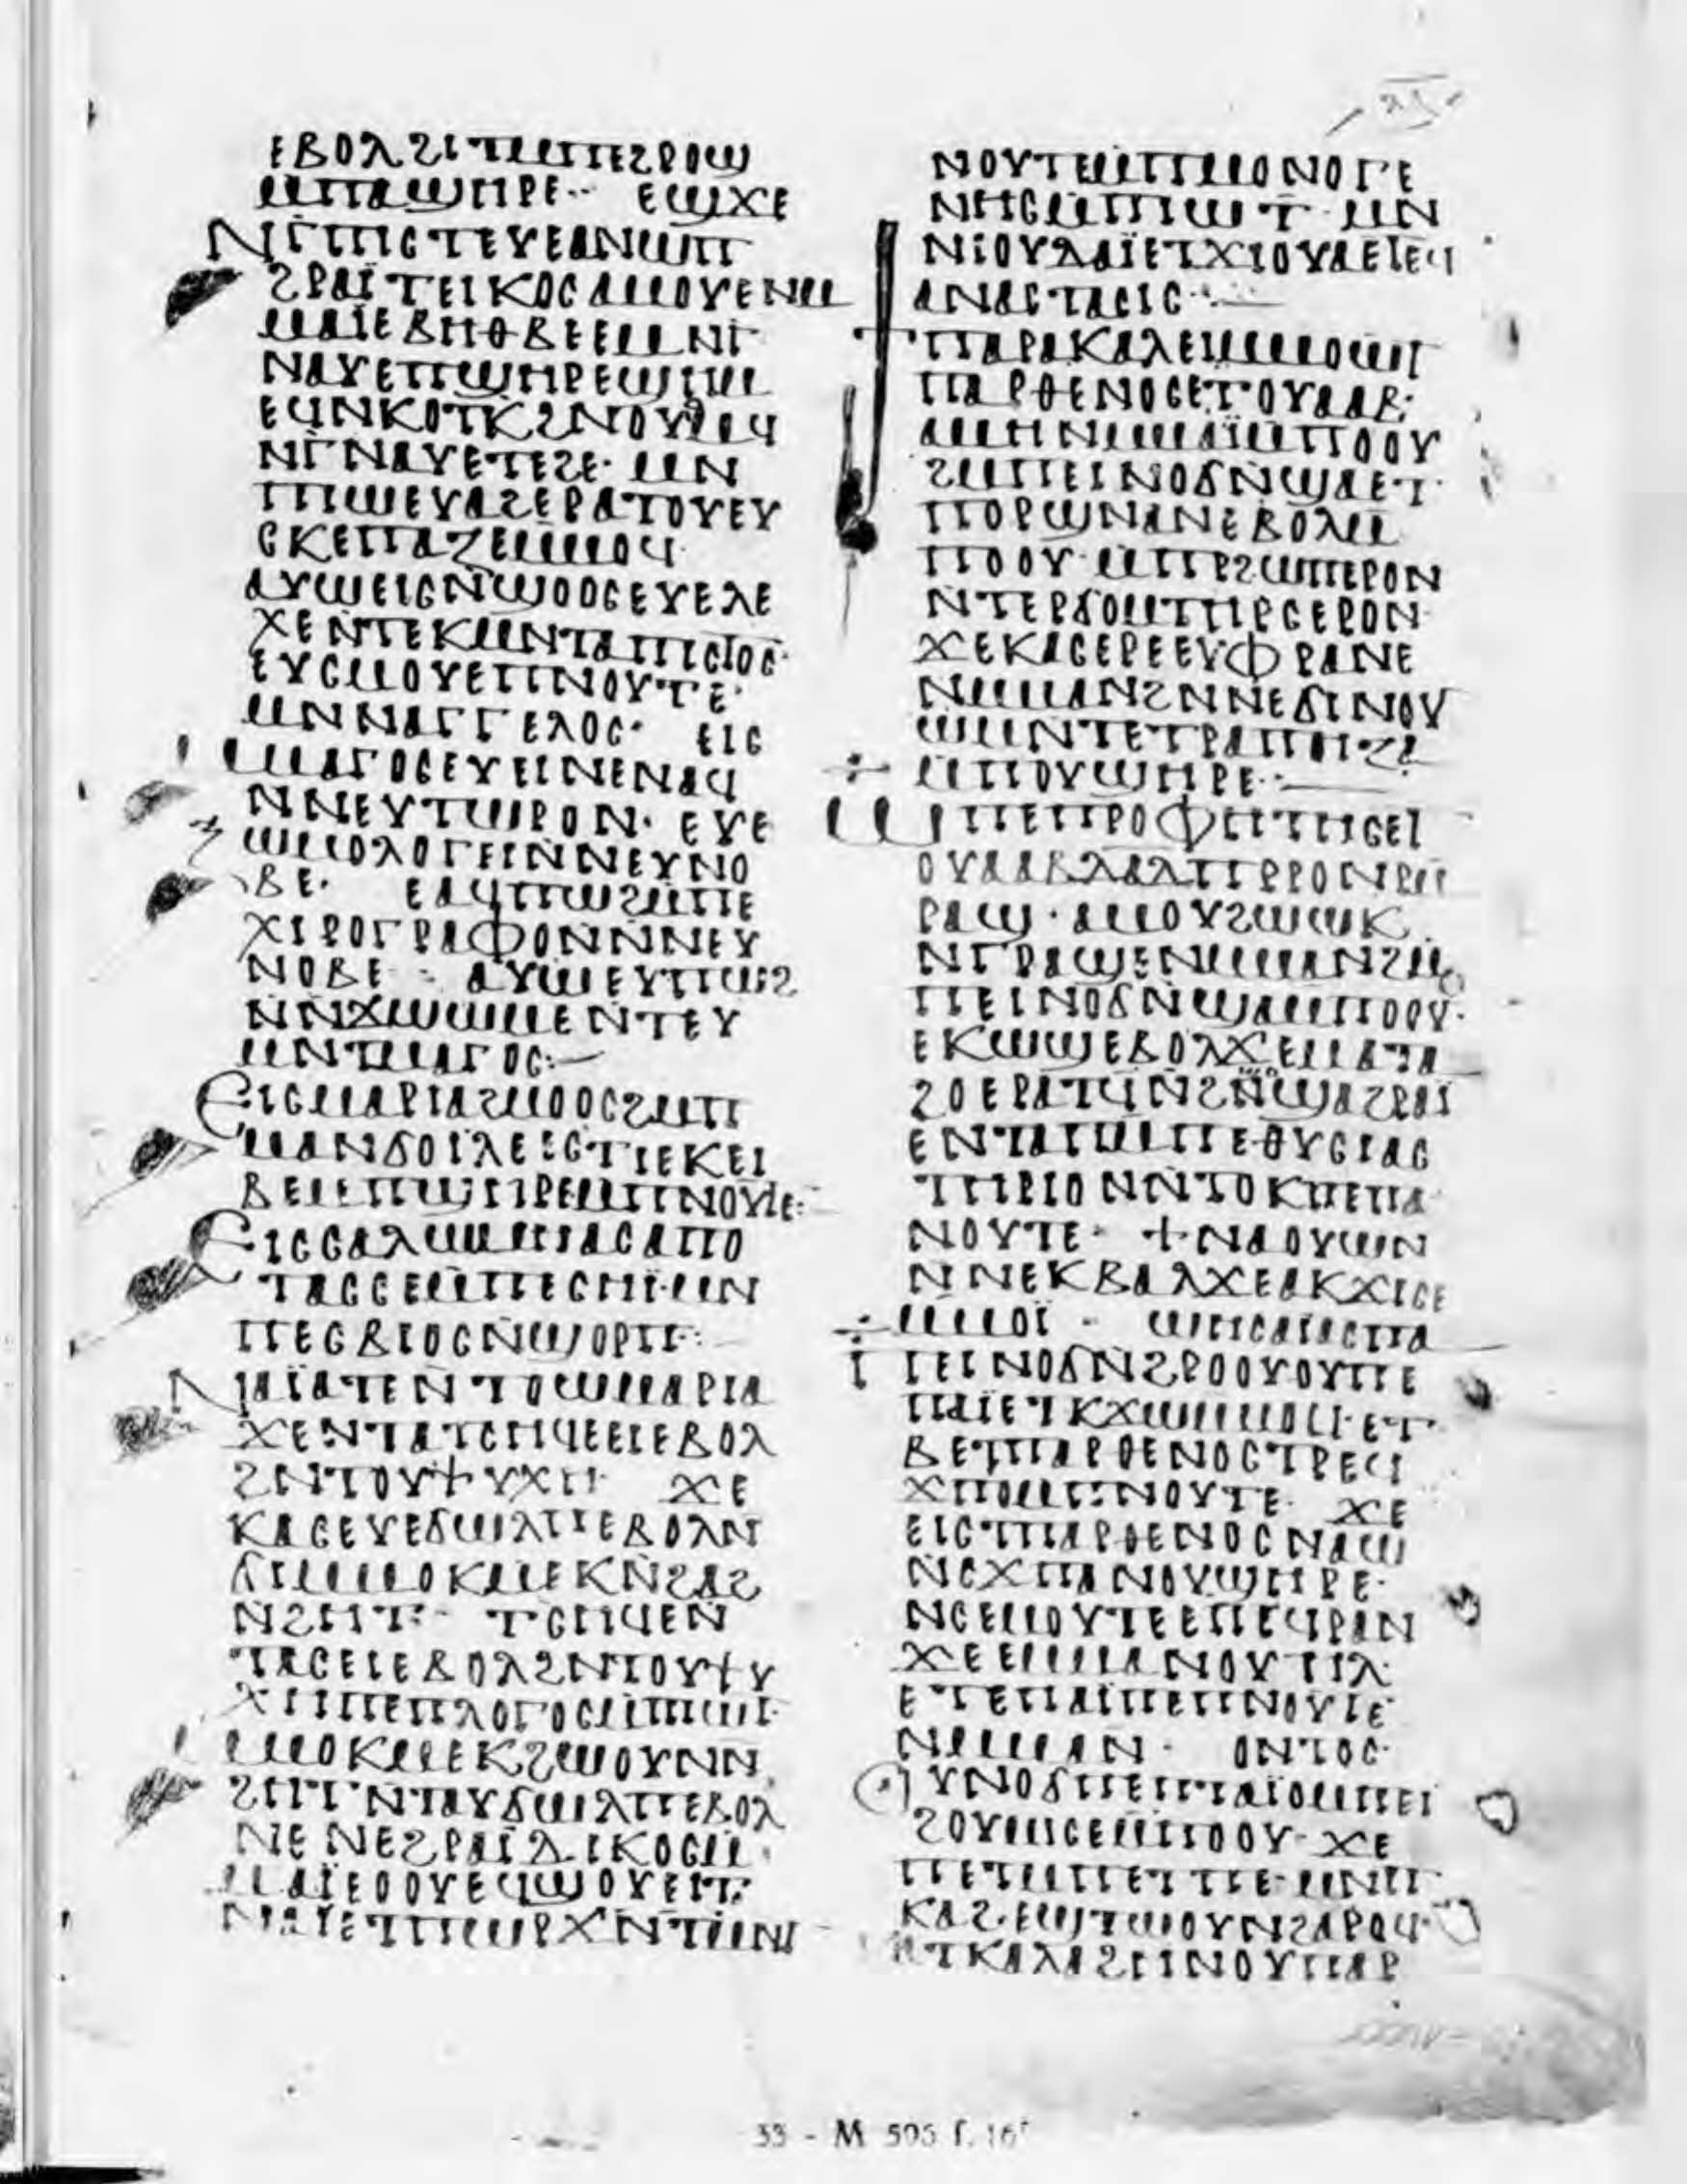 ⲉⲃⲟⲗϩⲓⲧⲙⲡⲉϩⲣⲟϣ
ⲙⲡⲁϣⲏⲣⲉ·· ⲉϣϫⲉ
ⲛⲅⲡⲓⲥⲧⲉⲩⲉⲁⲛⲙⲡ
ϩⲣⲁⲓ̈ⲧⲉⲓⲕⲟⲥⲁⲙⲟⲩⲉⲛⲙ
ⲙⲁⲓⲉⲃⲏⲑⲃⲉⲉⲙⲛⲅ
ⲛⲁⲩⲉⲡϣⲏⲣⲉϣⲏⲙ
ⲉϥⲛⲕⲟⲧⲕϩⲛⲟⲩⲟⲙϥ
ⲛⲅⲛⲁⲩⲉⲧⲉϩⲉ· ⲙⲛ
ⲡⲓⲱⲉⲩⲁϩⲉⲣⲁⲧⲟⲩⲉⲩ
ⲥⲕⲉⲡⲁⲍⲉⲙⲙⲟϥ
ⲁⲩⲱⲉⲓⲥⲛϣⲟⲟⲥⲉⲩⲉⲗⲉ
ⲭⲉⲛⲧⲉⲕⲙⲛⲧⲁⲡⲓⲥⲧⲟⲥ·
ⲉⲩⲥⲙⲟⲩⲉⲡⲛⲟⲩⲧⲉ·
ⲙⲛⲛⲁⲅⲅⲉⲗⲟⲥ· ⲉⲓⲥ
ⲙⲙⲁⲅⲟⲥⲉⲩⲉⲓⲛⲉⲛⲁϥ
ⲛⲛⲉⲩⲧⲱⲣⲟⲛ· ⲉⲩⲉ
ⲝⲱⲙⲟⲗⲟⲅⲉⲓⲛⲛⲉⲩⲛⲟ
ⲃⲉ· ⲉⲁϥⲡⲱϩⲙⲡⲉ
ⲭⲓⲣⲟⲅⲣⲁⲫⲟⲛⲛⲛⲛⲉⲩ
ⲛⲟⲃⲉ : ⲁⲩⲱⲉⲩⲡⲱϩ
ⲛⲛϫⲱⲱⲙⲉⲛⲧⲉⲩ
ⲙⲛⲧⲙⲁⲅⲟⲥ:—
ⲉⲓⲥⲙⲁⲣⲓⲁϩⲙⲟⲟⲥϩⲙⲡ
ⲙⲁⲛϭⲟⲓⲗⲉⲉⲥϯⲉⲕⲉⲓ
ⲃⲉⲉⲡϣⲏⲣⲉⲙⲡⲛⲟⲩⲧⲉ:
ⲉⲓⲥⲥⲁⲗⲱⲙⲏⲁⲥⲁⲡⲟ
ⲧⲁⲥⲥⲉⲙⲡⲉⲥⲏⲓ·ⲙⲛ
ⲡⲉⲥⲃⲓⲟⲥⲛϣⲟⲣⲡ·:
ⲛⲁⲓ̈ⲁⲧⲉⲛⲧⲟⲱⲙⲁⲣⲓⲁ
ϫⲉⲛⲧⲁⲧⲥⲏϥⲉⲉⲓⲉⲃⲟⲗ
ϩⲛⲧⲟⲩⲯⲩⲭⲏ ϫⲉ
ⲕⲁⲥⲉⲩⲉϭⲱⲗⲡⲉⲃⲟⲗⲛ
ϭⲓⲙⲙⲟⲕⲙⲉⲕⲛϩⲁϩ
ⲛϩⲏⲧ·- ⲧⲥⲏϥⲉⲛ
ⲧⲁⲥⲉⲓⲉⲃⲟⲗϩⲛⲧⲟⲩⲯⲩ
ⲭⲏⲡⲉⲡⲗⲟⲅⲟⲥⲙⲡⲓⲱⲧ·
ⲙⲙⲟⲕⲙⲉⲕϩⲱⲟⲩⲛⲛ
ϩⲏⲧⲛⲧⲁⲩϭⲱⲗⲡⲉⲃⲟⲗ
ⲛⲉⲛⲉϩⲣⲁⲓ̈ⲇⲓⲕⲟⲥⲙ
ⲙⲁⲓ̈ⲉⲟⲟⲩⲉϥϣⲟⲩⲉⲓⲧ·
ⲛⲁⲓⲉⲧⲡⲱⲣϫⲛⲧⲙⲛⲧ
ⲛⲟⲩⲧⲉⲙⲡⲙⲟⲛⲟⲅⲉ
ⲛⲏⲥⲙⲡⲓⲱⲧ·ⲙⲛ
ⲛⲓⲟⲩⲇⲁⲓ̈ⲉⲧϫⲓⲟⲩⲁⲉⲧⲉϥ
ⲁⲛⲁⲥⲧⲁⲥⲓⲥ·:—
ϯⲡⲁⲣⲁⲕⲁⲗⲉⲓⲙⲙⲟⲱⲧ
ⲡⲁⲣⲑⲉⲛⲟⲥⲉⲧⲟⲩⲁⲁⲃ:
ⲁⲙⲏⲛⲙⲙⲁⲓ̈ⲙⲡⲟⲟⲩ
ϩⲙⲡⲉⲓⲛⲟϭⲛϣⲁⲉⲧ·
ⲡⲟⲣϣⲛⲁⲛⲉⲃⲟⲗⲙ
ⲡⲟⲟⲩ·ⲙⲡⲣϩⲱⲡⲉⲣⲟⲛ
ⲛⲧⲉⲣϭⲟⲙⲧⲏⲣⲥⲉⲣⲟⲛ·
ϫⲉⲕⲁⲥⲉⲣⲉⲉⲩⲫⲣⲁⲛⲉ
ⲛⲙⲙⲁⲛϩⲛⲛⲉϭⲓⲛⲟⲩ
ⲱⲙⲛⲧⲉⲧⲣⲁⲡⲏⲍⲁ
ⲙⲡⲟⲩϣⲏⲣⲉ·:—
ⲱⲡⲉⲡⲣⲟⲫⲏⲧⲏⲥⲉⲧ
ⲟⲩⲁⲁⲃⲇⲁⲇⲡⲣⲣⲟⲛⲣⲙ
ⲣⲁϣ·ⲁⲙⲟⲩϩⲱⲱⲕ
ⲛⲅⲣⲁϣⲉⲛⲙⲙⲁⲛϩⲙ
ⲡⲉⲓⲛⲟϭⲛϣⲁⲙⲡⲟⲟⲩ·
ⲉⲕⲱϣⲉⲃⲟⲗϫⲉⲙⲁⲧⲁ
ϩⲟⲉⲣⲁⲧϥⲛϩⲛϣⲁϩⲣⲁⲓ̈
ⲉⲛⲧⲁⲡⲙⲡⲉⲑⲩⲥⲓⲁⲥ
ⲧⲏⲣⲓⲟⲛⲛⲧⲟⲕⲡⲉⲡⲁ
ⲛⲟⲩⲧⲉ· ϯⲛⲁⲟⲩⲱⲛ
ⲛⲛⲉⲕⲃⲁⲗϫⲉⲁⲕϫⲓⲥⲉ
ⲙⲙⲟⲓ̈ - ⲱⲏⲥⲁⲓⲁⲥⲡⲁ
ⲡⲉⲓⲛⲟϭⲛϩⲣⲟⲟⲩⲟⲩⲡⲉ
ⲡⲁⲓⲉⲧⲕϫⲱⲙⲙⲟϥ·ⲉⲧ
ⲃⲉⲧⲡⲁⲣⲑⲉⲛⲟⲥⲧⲣⲉϥ
ϫⲡⲟⲙⲡⲛⲟⲩⲧⲉ· ϫⲉ
ⲉⲓⲥⲧⲡⲁⲣⲑⲉⲛⲟⲥⲛⲁⲱ
ⲛⲥϫⲡⲁⲛⲟⲩϣⲏⲣⲉ·
ⲛⲥⲉⲙⲟⲩⲧⲉⲉⲡⲉϥⲣⲁⲛ
ϫⲉⲉⲙⲙⲁⲛⲟⲩⲏⲗ
ⲉⲧⲉⲡⲁⲓⲡⲉⲡⲛⲟⲩⲧⲉ
ⲛⲙⲙⲁⲛ· ⲟⲛⲧⲟⲥ·
ⲟⲩⲛⲟϭⲡⲉⲡⲧⲁⲓ̈ⲟⲙⲡⲉⲓ
ϩⲟⲩⲙⲓⲥⲉⲙⲡⲟⲟⲩ· ϫⲉ
ⲡⲉⲧⲙⲡⲉⲧⲡⲉ·ⲙⲛⲡ
ⲕⲁϩ·ⲉϣⲧⲱⲟⲩⲛϩⲁⲣⲟϥ·
ⲁⲧⲕⲁⲗⲁϩⲏⲛⲟⲩⲡⲁⲣ
33 - M 595 f. 16r